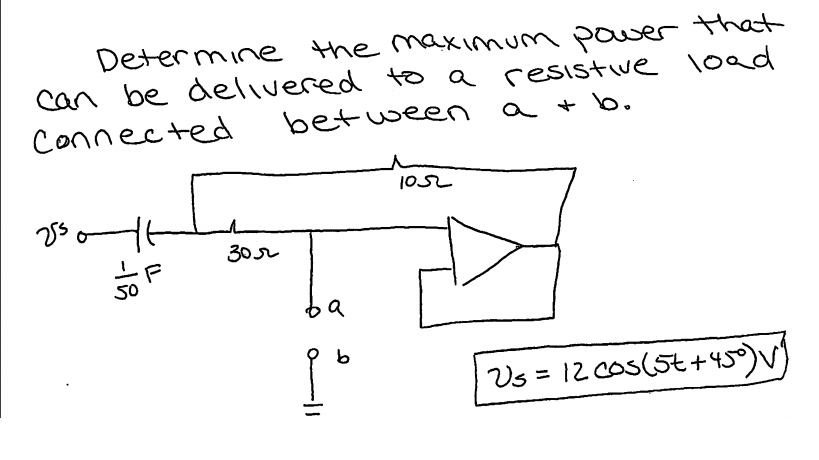 Determine the maximum power that
can be delivered to a resistive load
connected between a + b.
10Ω
vs
30Ω
1/50 F
a
b
vs = 12 cos(5t+45°)V